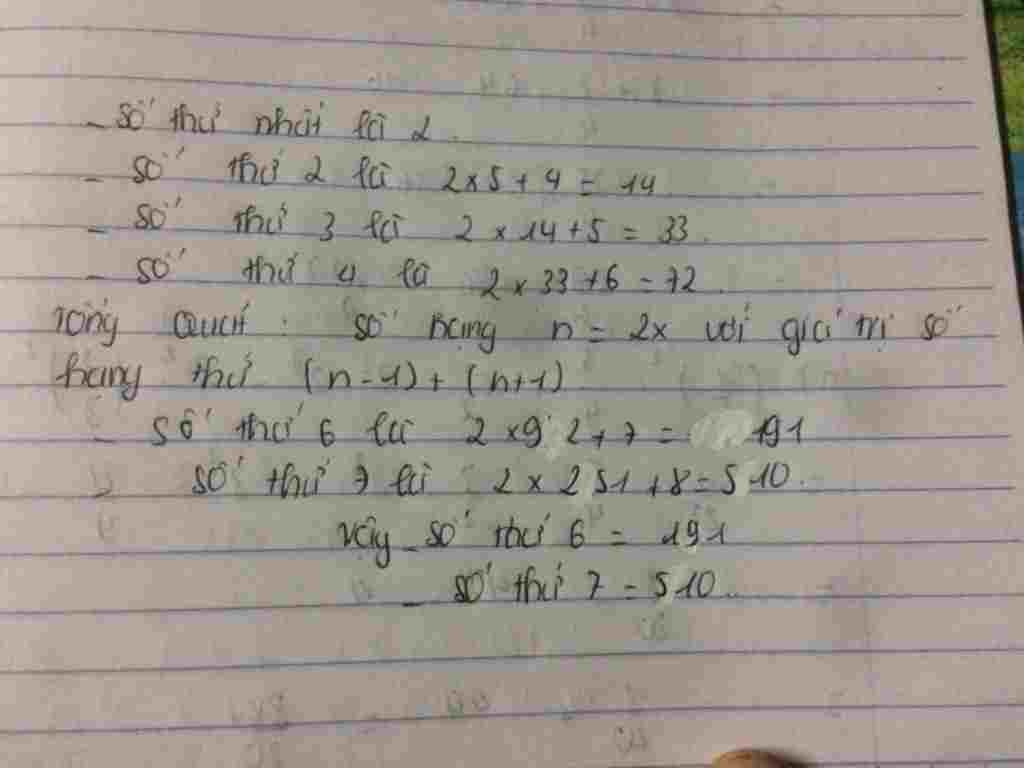 - số thứ nhất là 2.
- số thứ 2 là 2 x 5 + 4 = 14
- số thứ 3 là 2 x 14 + 5 = 33.
- số thứ 4 là 2 x 33 + 6 = 72.
Tổng quát: số hạng n = 2x với giá trị số
hạng thứ (n-1) + (n+1)
- số thứ 6 là 2 x 9 2 + 7 = 191
- số thứ 7 là 2 x 251 + 8 = 510.
vậy - số thứ 6 = 191
- số thứ 7 = 510.